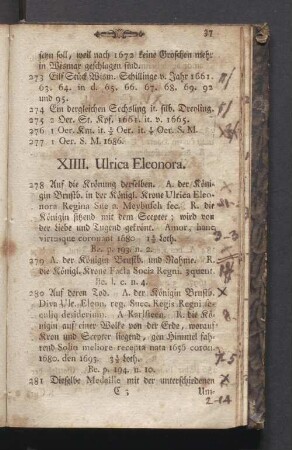 37
seyn soll, weil nach 1672 keine Groschen mehr
in Wismar geschlagen sind.
273 Eilf Stück Wism. Schillinge v. Jahr 1661.
63. 64. in d. 65. 66. 67. 68. 69. 92
und 95.
274 Ein dergleichen Sechsling it. silb. Dreyling.
275 2 Oer. St. Kpf. 1661. it. v. 1665.
276 1 Oer. Km. it. ½ Oer. it. ¼ Oer. S. M.
277 1 Oer. S. M. 1686.
XIIII. Ulrica Eleonora.
278 Auf die Krönung derselben. A. der Köni-
gin Brustb. in der Königl. Krone Ulrica Eleo-
nora Regina Sue a Meybusch fec. R. die
Königin sitzend mit dem Scepter; wird von
der Liebe und Tugend gekrönt. Amor, hanc
virtusque coronat 1680 1¾ loth.
Br. p. 193 n. 2.
279 A. der Königin Brustb. und Nahme. R.
die Königl. Krone Facta Socia Regni. 3quent.
Br. l. c. n. 4.
280 Auf deren Tod. A. der Königin Brustb.
Diva Ulr. Eleon. reg. Suec. Regis Regni. se-
culiq desiderium. A Karlsteen. R. die Kö-
nigin auf einer Wolke von der Erde, worauf
Kron und Scepter liegend, gen Himmel fah-
rend Solio meliore recepta nata 1656 coron.
1680. den 1693. 3¾ loth.
Br. p. 194. n. 10.
281 Dieselbe Medaille mit der unterschiedenen
C 3
Um-
3-3
18
8
7-5
2-14